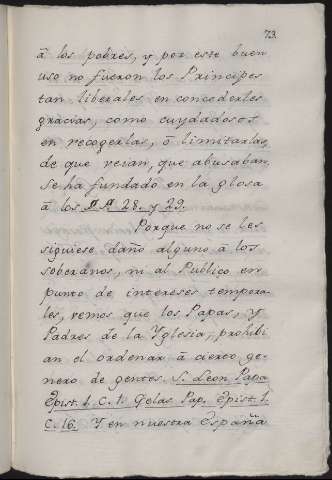 73
â los pobres, y por este buen
uso no fueron los Principes
tan liberales en concederles
gracias, como cuydadosos
en recogerlas, ô limitarlas,
de que veian, que abusaban.
Se ha fundado en la glosa
â los §.§. 28. y 29.
Porque no se les
siguiese daño alguno â los
soberanos, ni al Publico en
punto de intereses tempora-
les, vemos que los Papas, y
Padres de la Yglesia, prohibi-
an el ordenar â cierto ge-
nero de gentes. S. Leon Papa
Epist. 1. C. 1. Gelas. Pap. Epist. 1.
C. 16. Y en nuestra España